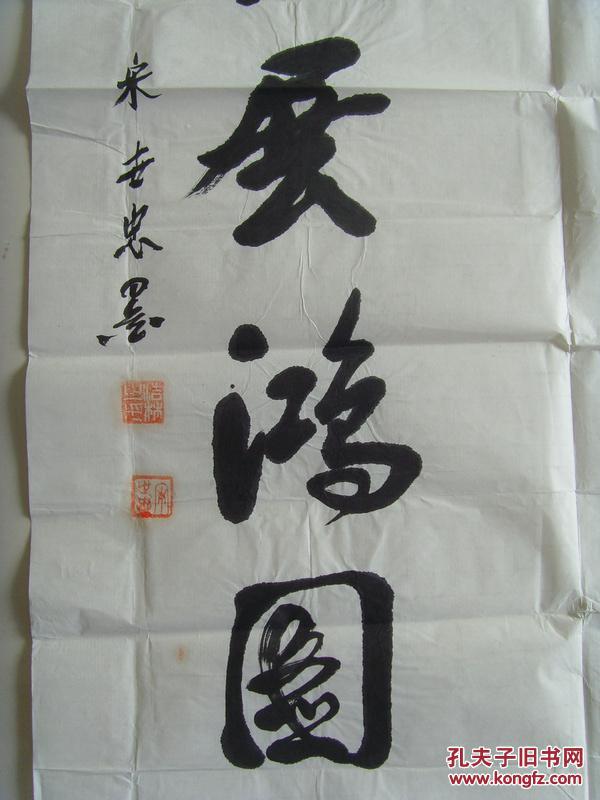 展鸿图
宋世忠墨
孔夫子旧书网
www.kongfz.com